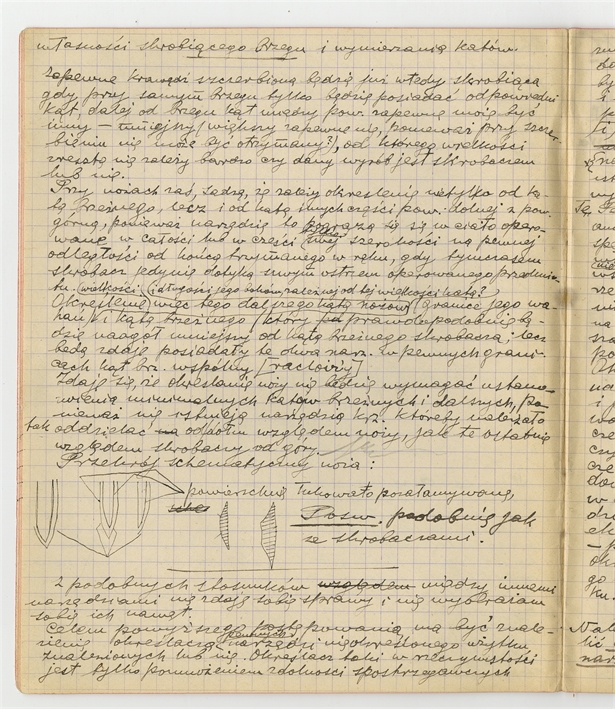 własności skrobiącego brzegu i wymierzania kątów.
Zapewne krawędź szczerbiona będzie już wtedy skrobiąca
gdy, przy samym brzegu tylko będzie posiadać odpowiedni
kąt, dalej od brzegu kąt między pow. zapewne może być
inny – mniejszy (większy zapewne nie, ponieważ przy szczer-
bieniu nie może być otrzymany?), od którego wielkości
zresztą nie zależy bardzo czy dany wyrób jest skrobaczem
lub nie.
Przy nożach zaś, sądzę, że zależy określenie nietylko od ką-
ta brzeżnego, lecz i od kąta innych części pow. dolnej z pow.
górną, ponieważ narzędzie to pogrąża się w ciało opero-
wane w całości lub w części swej szerokości na pewnej
odległości od końca trzymanego w ręku, gdy tymczasem
skrobacz jedynie dotyka swym ostrzem operowanego przedmio-
tu. (wielkości i długości jego boków zależnej od tej wielkości kąta?
Określenie więc tego dalszego kąta nożów (granice jego wa-
hań) i kąta brzeżnego (który prawdopodobnie bę-
dzie naogół mniejszy od kąta brzeżnego skrobacza; lecz
będą zdaje posiadały te dwa narz. w pewnych grani-
cach kąt brz. wspólny)
Zdaje się, że określania noży nie będzie wymagać ustano-
wienia minimalnych kątów brzeżnych i dalszych, po-
nieważ nie istnieją narzędzia krz. któreby należało
tak oddzielać od dołu względem noży, jak te ostatnie
względem skrobaczy od góry.
Przekrój schematyczny noża:
powierzchnie łukowato pozałamywane,
Posw. podobnie jak
ze skrobaczami.
Z podobnych stosunków względem między innemi
narzędziami nie zdaję sobie sprawy i nie wyobrażam
sobie ich nawet.
Celem powyższego postępowania ma być znale-
zienie określacza narzędzi nieokreślonego użytku
znalezionych lub nie. Określacz taki w rzeczywistości
jest tylko pomnożeniem zdolności spostrzegawczych